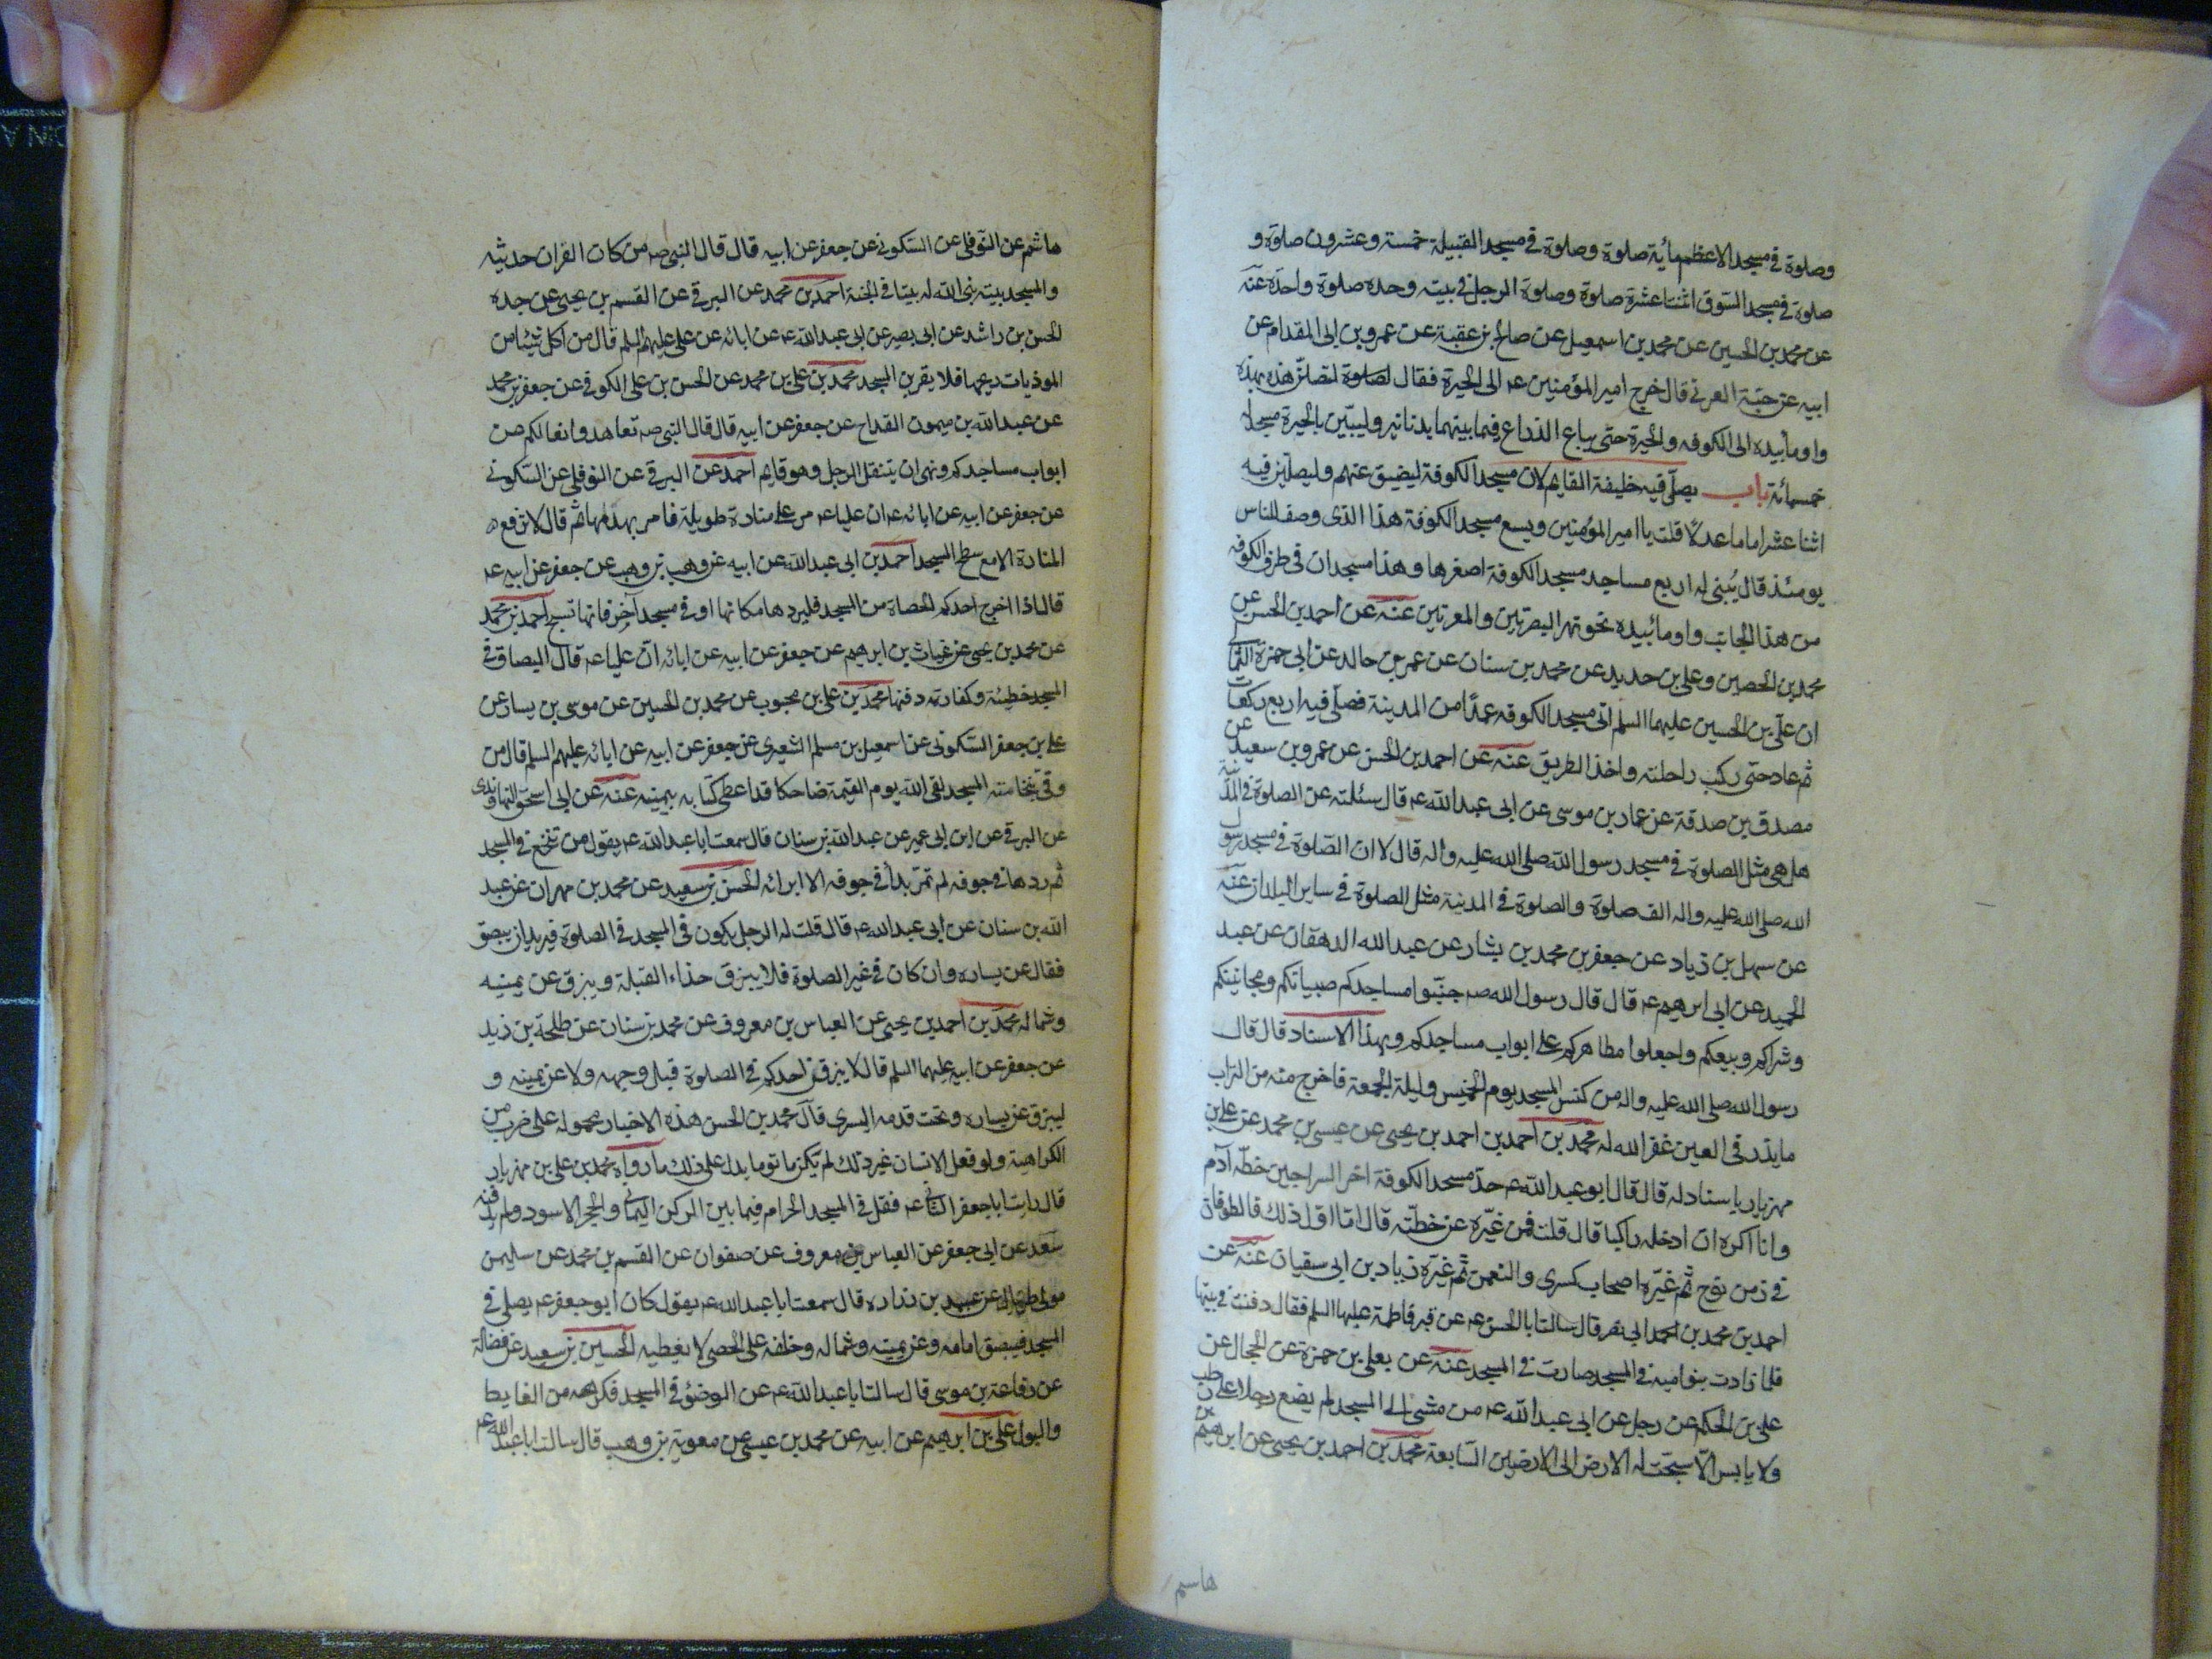 وصلوة في مسجد الاعظم مأية صلوة وصلوة في مسجد القبيلة خمسة وعشرون صلوة و
صلوة في مسجد السوق اثنتا عشرة صلوة وصلوة الرجل في بيته وحده صلوة واحدة عنه
عن محمد بن الحسين عن محمد بن اسمعيل عن صالح بن عقبة عن عمرو بن ابي المقدام عن
ابيه عن حبّة العرني قال خرج امير المؤمنين عه الى الحيرة فقال لتصلن هذه بهذه
واومأ بيده الى الكوفه والحيرة حتى يباع الذراع فيما بينهما بدنانير وليبنين بالحيرة مسجد له
خمسمائة باب يصلّي فيه خليفة القايم لان مسجد الكوفة ليضيق عنهم وليصلين فيه
اثنا عشر اماما عدلًا قلت يا امير المؤمنين ويسع مسجد الكوفة هذا الذى وصف للناس
يومئذ قال يُبنى له اربع مساجد مسجد الكوفة اصغرها وهذا مسجدان في طرفي الكوفه
من هذا الجانب واومأ بيده نحو نهر البصرتين والمعربين عنه عن احمد بن الحسن عن
محمد بن الحصين وعلي بن حديد عن محمد بن سنان عن عمر بن خالد عن ابي حمزة الثمالي
ان علي بن الحسين عليهما السلم اتى مسجد الكوفه عمدًا من المدينة فصلّى فيه اربع ركعات
ثم عاد حتى ركب راحلته واخذ الطريق عنه عن احمد بن الحسن عن عمرو بن سعيد عن
مصدق بن صدقة عن عمار بن موسى عن ابي عبد الله عه قال سئلته عن الصلوة في المدينة
هل هي مثل الصلوة في مسجد رسول الله صلى الله عليه واله قال لا ان الصّلوة في مسجد رسول
الله صلى الله عليه واله الف صلوة والصلوة في المدينة مثل الصلوة في ساير البلدان عنه
عن سهل بن زياد عن جعفر بن محمد بن بشار عن عبد الله الدهقان عن عبد
الحميد عن ابي ابرهيم عه قال قال رسول الله صه جنّبوا مساجدكم صبيانكم ومجانينكم
وشراكم وبيعكم واجعلوا مطاهركم على ابواب مساجدكم وبهذا الاسناد قال قال
رسول الله صلى الله عليه واله من كنس المسجد يوم الخميس وليلة الجمعة فاخرج منه من التراب
ما يذر في العين غفر الله له محمد بن احمد بن احمد بن يحيى عن عيسى بن محمد عن علي بن
مهزيار باسناد له قال قال ابو عبد الله عه حدّ مسجد الكوفة اخر السراجين خطّه آدم
وانا اكره ان ادخله راكبا قال قلت فمن غيّره عن خطّته قال امّا اول ذلك فالطوفان
في زمن نوح ثم غيّره اصحاب كسرى والنعمن ثم غيّره زياد بن ابي سفيان عنه عن
احمد بن محمد بن احمد ابي نصر قال سالت ابا الحسن عه عن قبر فاطمة عليها السلم فقال دفنت في بيتها
فلما زادت بنو امية في المسجد صارت في المسجد عنه عن يعلى بن حمزة عن الحجال عن
علي بن الحكم عن رجل عن ابي عبد الله عه من مشى الى المسجد لم يضع رجلا على رطب
ولا يابس الّا سبّحت له الارض الى الارضين السّابعة محمد بن احمد بن يحيى عن ابرهيم بن
هاسم
هاشم عن النوفلي عن السّكوني عن جعفر عن ابيه قال قال النبي صه من كان القران حديثه
والمسجد بيته بنى الله له بيتا في الجنة احمد بن محمد عن البرقي عن القسم بن يحيى عن جده
الحسن بن راشد عن ابي بصير عن ابي عبد الله عه عن ابائه عن علي عليهم السلم قال من اكل شيئا من
الموذيات ريحها فلا يقربن المسجد محمد بن علي بن محمد عن الحسن بن علي الكوفي عن جعفر بن محمد
عن عبد الله بن ميمون القداح عن جعفر عن ابيه قال قال النبي صه تعاهدوا نعالكم عن
ابواب مساجدكم ونهى ان يتنعّل الرجل وهو قايم احمد عن البرقي عن النوفلي عن السّكوني
عن جعفر عن ابيه عن ابائه عه ان عليا عه مر على منارة طويلة فامر بهدمها ثم قال لا ترفع
المنارة الا مع سطح المسجد احمد بن ابي عبد الله عن ابيه عن وهب بن وهب عن جعفر عن ابيه عه
قال اذا اخرج احدكم الحصاة من المسجد فليردها مكانها او في مسجد آخر فانها تسبح احمد بن محمد
عن محمد بن يحيى عن غياث بن ابرهيم عن جعفر عن ابيه عن ابائه ان عليا عه قال البصاق في
المسجد خطيئة وكفارته دفنها محمد بن علي بن محبوب عن محمد بن الحسين عن موسى بن يسار عن
علي بن جعفر السّكوني عن اسمعيل بن مسلم الشعيري عن جعفر عن ابيه عن ابائه عليهم السلم قال من
وقّى بنخامته المسجد لقى الله يوم القيمة ضاحكا قد اعطى كتابه بيمينه عنه عن ابي اسحق النهاوندى
عن البرقي عن ابن ابي عمير عن عبد الله بن سنان قال سمعت ابا عبد الله عه يقول من تنخّع في المسجد
ثم ردها في جوفه لم تمرّ بدأ في جوفه الا ابرأته الحسن بن سعيد عن محمد بن مهران عن عبد
الله بن سنان عن ابي عبد الله عه قال قلت له الرجل يكون في المسجد في الصلوة فيريد ان يبصق
فقال عن يساره وان كان في غير الصلوة فلا يبزق حذاء القبلة ويبزق عن يمينه
وشماله محمد بن احمد بن يحيى عن العباس بن معروف عن محمد بن سنان عن طلحة بن زيد
عن جعفر عن ابيه عليهما السلم قال لا يبزقن احدكم في الصلوة قبل وجهه ولا عن يمينه و
ليبزق عن يساره وتحت قدمه اليسرى قال محمد بن الحسن هذه الاخبار محمولة على ضرب من
الكراهية ولو فعل الانسان غير ذلك لم يكن ماثوما يدل على ذلك ما رواه محمد بن علي بن مهزيار
قال رايت ابا جعفر الثاني عه تفل في المسجد الحرام فيما بين الركن اليماني والحجر الاسود ولم يدفنه
سعد عن ابي جعفر عن العباس بن معروف عن صفوان عن القسم بن محمد عن سليمن
مولى طربال عن عبيد بن زراره قال سمعت ابا عبد الله عه يقول كان ابو جعفر عه يصلي في
المسجد فيبصق امامه وعن يمينه وشماله وخلفه على الحصى لا يغطيه الحسين بن سعيد عن فضالة
عن رفاعة بن موسى قال سالت ابا عبد الله عه عن الوضؤ في المسجد فكرهه من الغايط
والبول علي بن ابرهيم عن ابيه عن محمد بن عيسى عن معوية بن وهب قال سالت ابا عبد الله عه